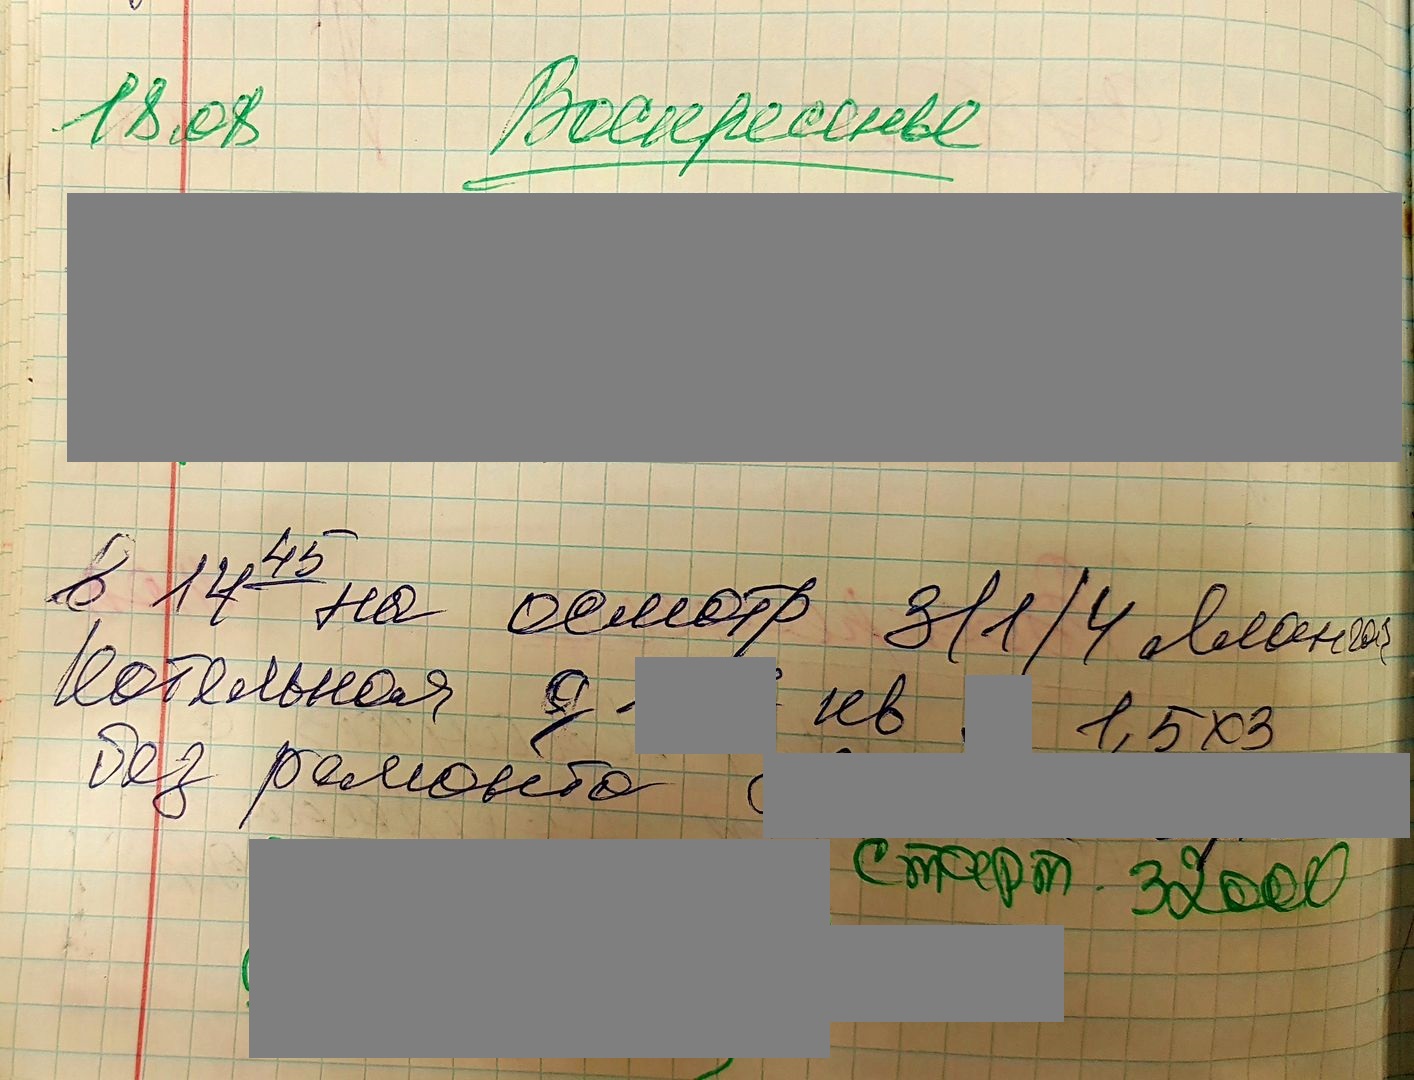 18.08 Воскресенье
в 14 45 на осмотр 3/1/4
Котельная д. кв 1,5х3
без ремонта
старт. 32000